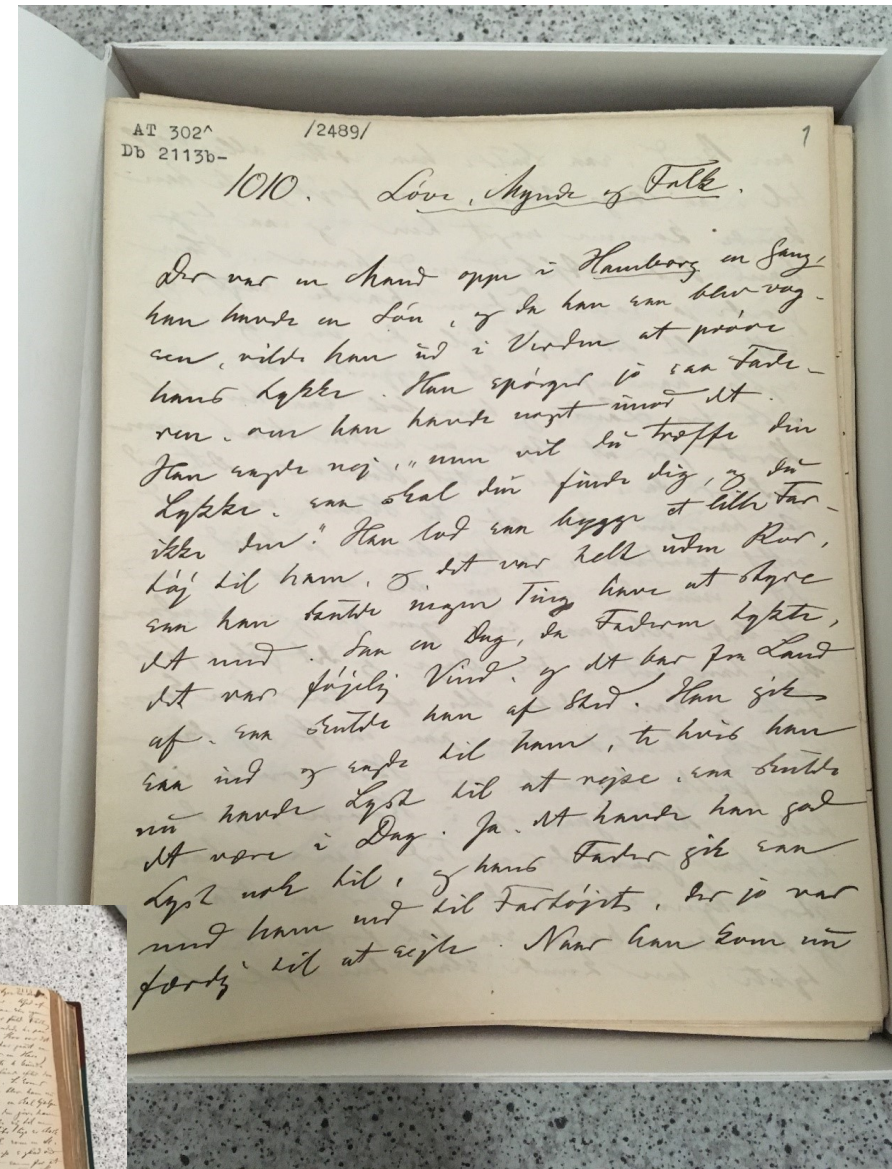 AT 302^ /2489/ 1
Db 2113b-
1010. Löve, Mynde og Falk.
Der var en Mand oppe i Hamborg en Gang,
han havde en Sön, og da han saa blev vog-
sen, vilde han ud i Verden at pröve
hans Lykke. Han spörger jo saa Fade-
ren, om han havde noget imod det.
Han sagde nej, "men vil du træffe din
Lykke, saa skal den finde dig, og du
ikke den." Han lod saa bygge et lille Far-
töj til ham, og det var helt uden Ror,
saa han skulde ingen Ting have at styre
det med. Saa en Dag, da Faderen tykte,
det var föjelig Vind, og det bar fra Land
af, saa skulde han af Sted. Han gik
saa ind og sagde til ham, te hvis han
nu havde Lyst til at rejse, saa skulde
det være i Dag. Ja, det havde han god
Lyst nok til, og hans Fader gik saa
med ham ned til Fartöjet, der jo var
færdig til at sejle. Naar han kom nu